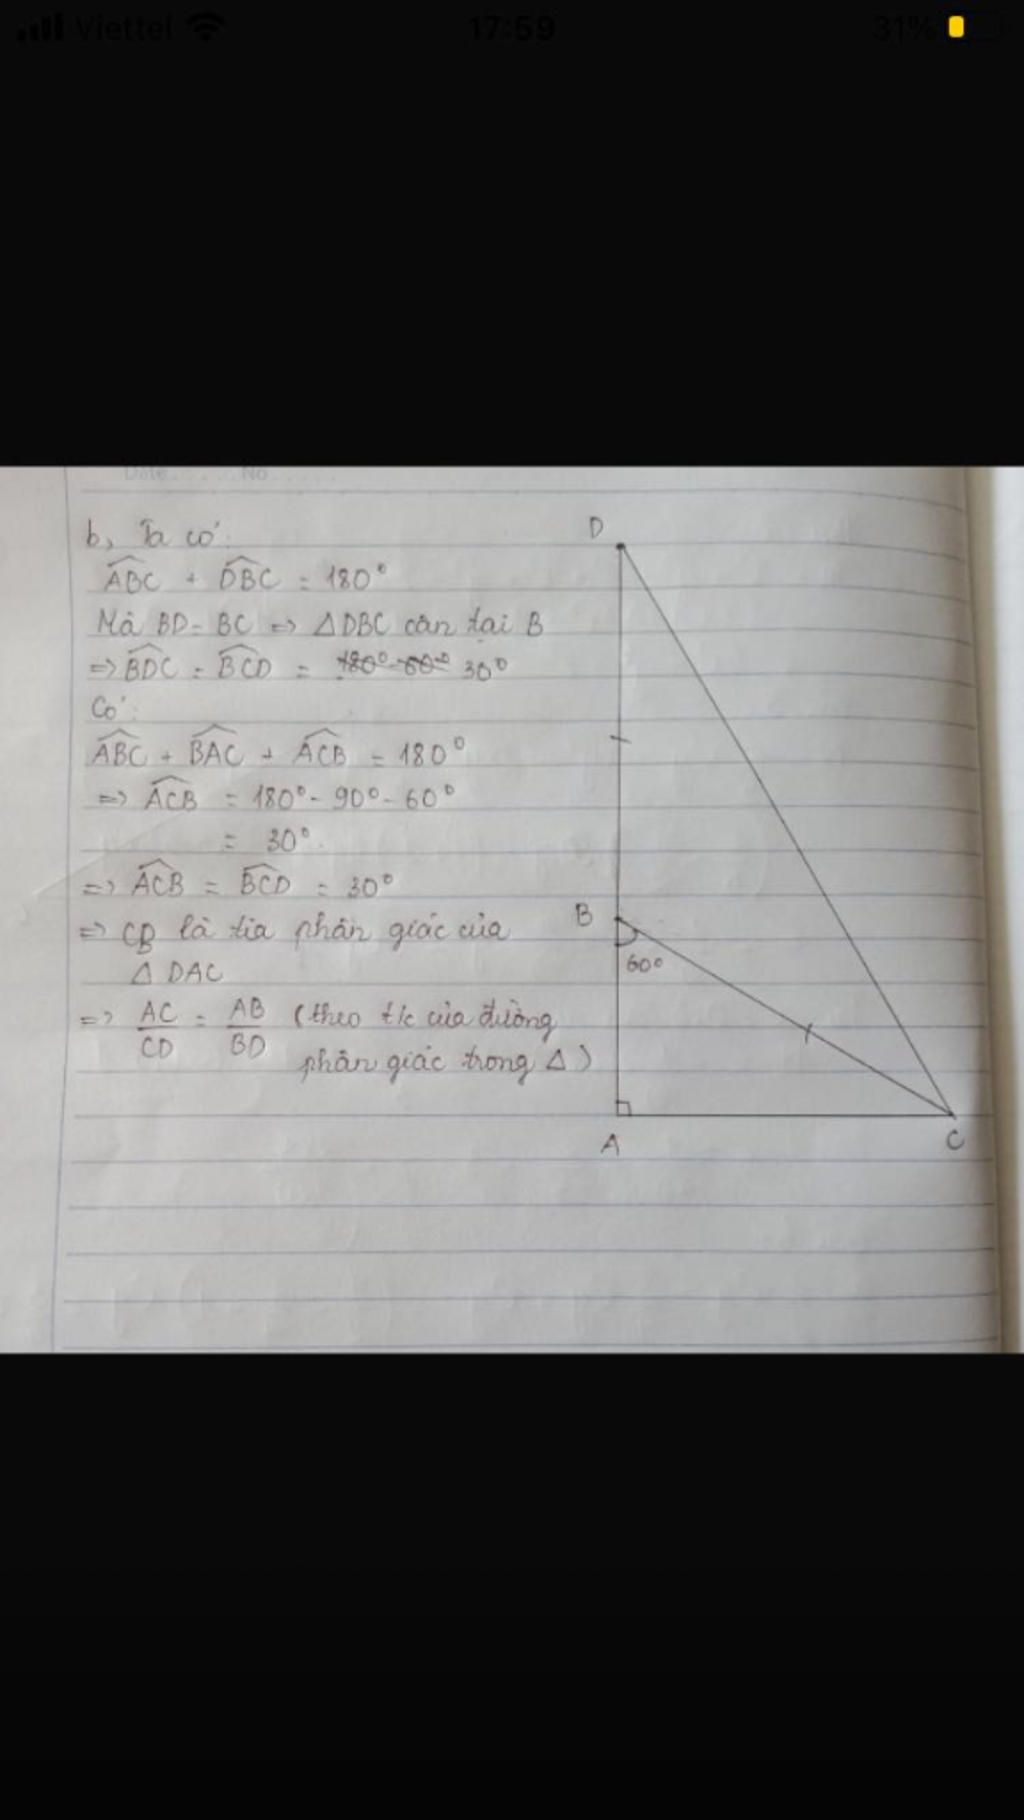 Viettel 17:59 31%
Date No
b, Ta có:
ABC + DBC = 180°
Mà BD = BC => ΔDBC cân tại B
=> BDC = BCD = 180° - 60° 30°
Có:
ABC + BAC + ACB = 180°
=> ACB = 180° - 90° - 60°
= 30°.
=> ACB = BCD = 30°
=> CB là tia phân giác của
Δ DAC
=> AC/CD = AB/BD (theo t/c của đường
phân giác trong Δ)
D
B
60°
A
C